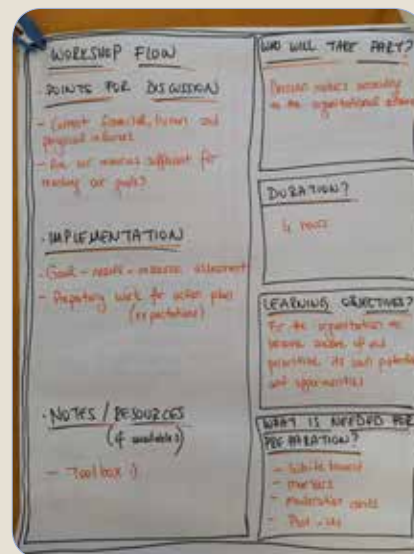 WORKSHOP FLOW
POINTS FOR DISCUSSION
- Current financial, human and
physical resources
- Are our resources sufficient for
reaching our goals?
· IMPLEMENTATION
- Goals - needs - resources assessment
- Preparatory work for action plan
(expectations)
· NOTES / RESOURCES
(if available)
- Toolbox :)
WHO WILL TAKE PART?
Decision makers according
to the organisational
DURATION?
4 hours
LEARNING OBJECTIVES?
For the organisation to
become aware of and
prioritise its own potential
and opportunities
WHAT IS NEEDED FOR
PREPARATION?
- White board
- markers
- Moderation cards
- Post-its